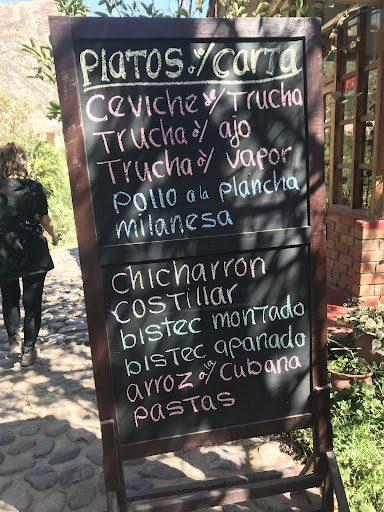 PLATOS a/ CARTA
Ceviche de/ TRUCHA
TRUCHA a/ ajo
TRUCHA a/ vapor
pollo a la plancha
milanesa
chicharron
costillar
bistec montado
bistec apanado
arroz a la/ cubana
pastas